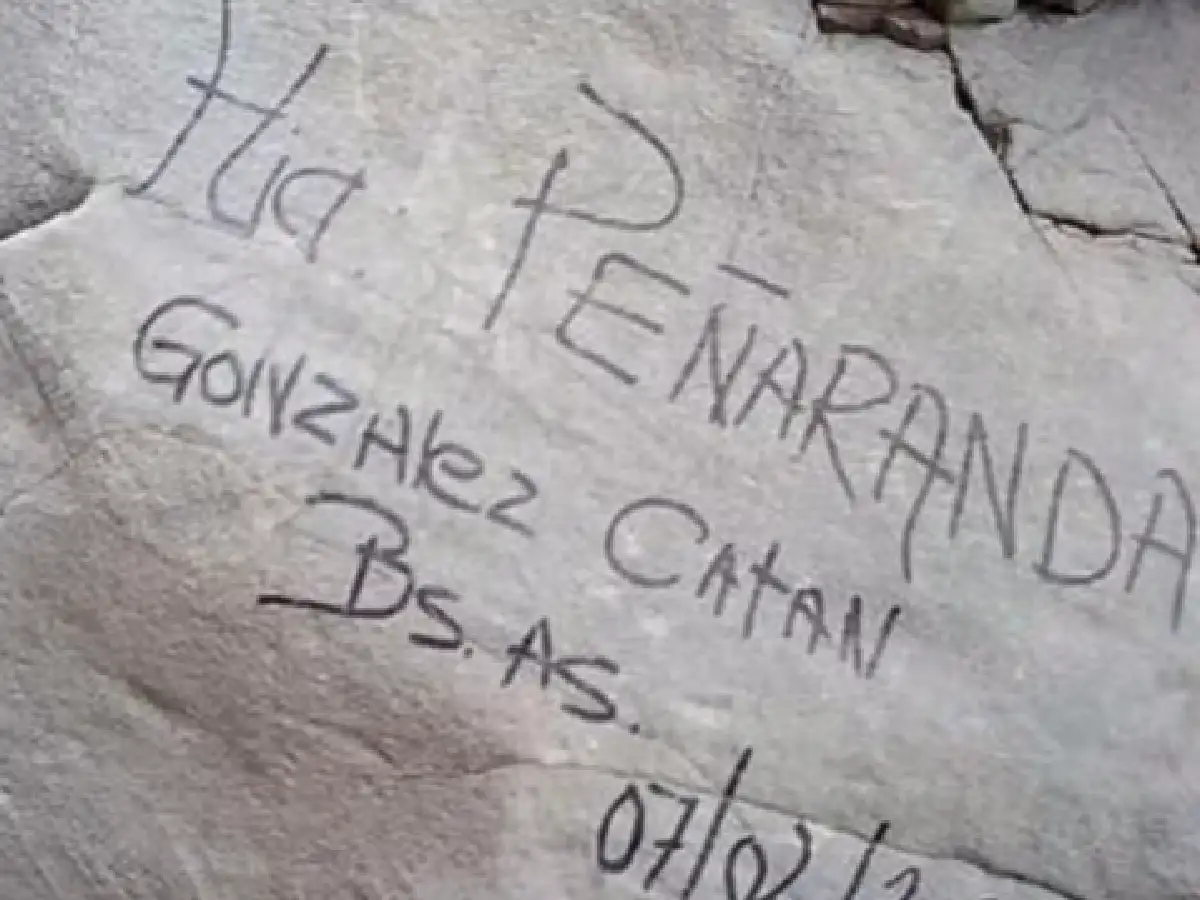 Flia. PEÑARANDA
GONZALEZ CATAN
BS. AS.
07/02/2